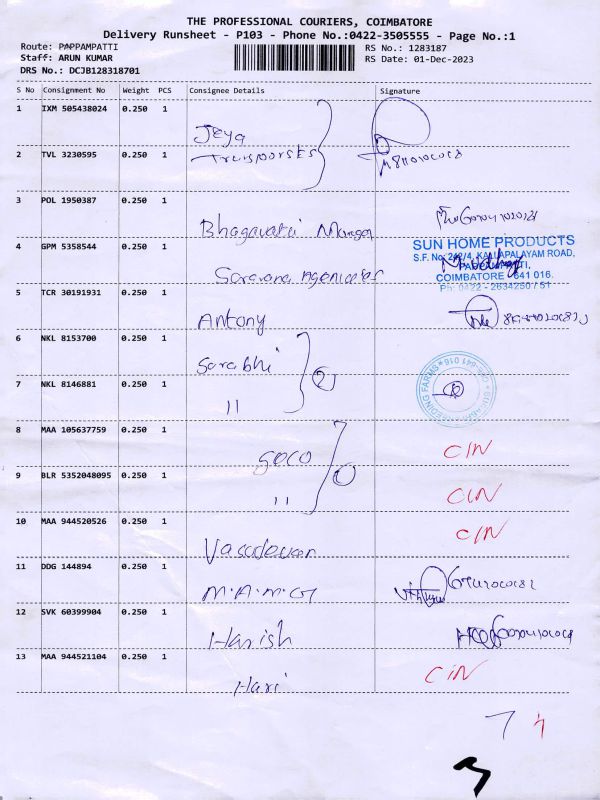 THE PROFESSIONAL COURIERS, COIMBATORE
Delivery Runsheet - P103 - Phone No.:0422-3505555 - Page No.:1
Route: PAPPAMPATTI
Staff: ARUN KUMAR
DRS No.: DCJB128318701
RS No.: 1283187
RS Date: 01-Dec-2023
S No Consignment No Weight PCS Consignee Details Signature
1 IXM 505438024 0.250 1 Jeya
2 TVL 3230595 0.250 1 Transports
3 POL 1950387 0.250 1 Bhagavathi
4 GPM 5358544 0.250 1 Saravana Agencies
SUN HOME PRODUCTS
S.F. No: 242/4, KALLAPALAYAM ROAD,
PAPPAMPATTI,
COIMBATORE - 641 016.
Ph: 0422 - 2634250 / 51
5 TCR 30191931 0.250 1 Antony
6 NKL 8153700 0.250 1 Sarabhi
7 NKL 8146881 0.250 1 11 2
8 MAA 105637759 0.250 1 goco CIN
9 BLR 5352048095 0.250 1 11 CIN
10 MAA 944520526 0.250 1 Vasudevan CIN
11 DDG 144894 0.250 1 M.A.M.G
12 SVK 60399904 0.250 1 Harish
13 MAA 944521104 0.250 1 Hari CIN